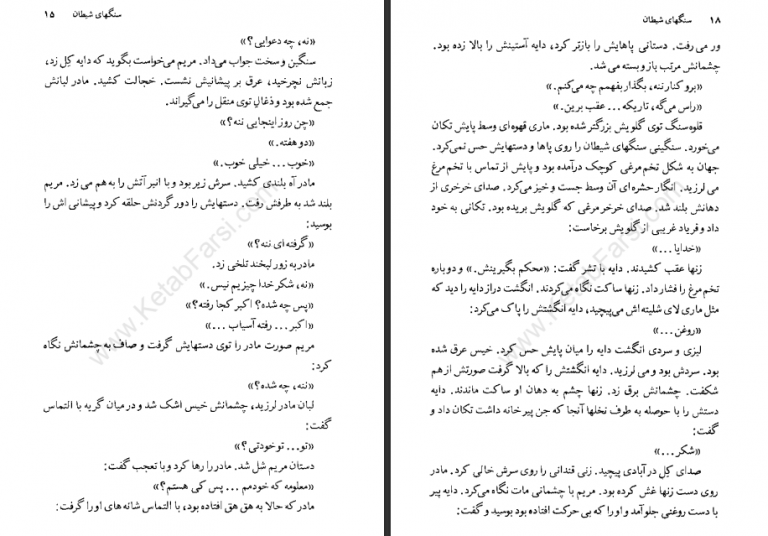 ۱۸ سنگهای شیطان
ور می رفت. دستانی پاهایش را بازتر کرد، دایه آستینش را بالا زده بود.
چشمانش مرتب باز و بسته می شد.
«برو کنار ننه، بگذار بفهمم چه می‌کنم.»
«راس می‌گه، تاریکه... عقب برین.»
قلوه‌سنگ توی گلویش بزرگتر شده بود. ماری قهوه‌ای وسط پایش تکان
می‌خورد. سنگینی سنگهای شیطان را روی پاها و دستهایش حس نمی‌کرد.
جهان به شکل تخم مرغی کوچک درآمده بود و پایش از تماس با تخم مرغ
می لرزید. انگار حشره‌ای آن وسط جست و خیز می‌کرد. صدای خرخری از
دهانش بلند شد. صدای خرخر مرغی که گلویش بریده بود. تکانی به خود
داد و فریاد غریبی از گلویش برخاست:
«خدایا...»
زنها عقب کشیدند. دایه با تشر گفت: «محکم بگیرینش.» و دوباره
تخم مرغ را فشار داد. زنها ساکت نگاه می‌کردند. انگشت دراز دایه را دید که
مثل ماری لای شلیته‌اش می‌پیچید، انگشتش را پاک می‌کرد:
«روغن...»
لیزی و سردی انگشت دایه را میان پایش حس کرد. خیس عرق شده
بود. سردش بود و می لرزید. دایه انگشتش را که بالا گرفت صورتش از هم
شکفت. چشمانش برق زد. زنها چشم به دهان او ساکت ماندند. دایه
دستش را با حوصله به طرف نخلها آنجا که جن پیر خانه داشت تکان داد و
گفت:
«شکر...»
صدای کِل در آبادی پیچید. زنی قندانی را روی سرش خالی کرد. مادر
روی دست زنها غش کرده بود. مریم با چشمانی مات نگاه می‌کرد. دایه پیر
با دست روغنی جلو آمد و او را که بی حرکت افتاده بود بوسید و گفت:
سنگهای شیطان ۱۵
«نه، چه دعوایی؟»
سنگین و سخت جواب می‌داد. مریم می‌خواست بگوید که دایه کِل زد،
زبانش نچرخید، عرق بر پیشانیش نشست. خجالت کشید. مادر لبانش
جمع شده بود و ذغالِ توی منقل را می‌گیراند.
«چن روز اینجایی ننه؟»
«دو هفته.»
«خوب... خیلی خوب.»
مادر آه بلندی کشید. سرش زیر بود و با انبر آتش را به هم می زد. مریم
بلند شد به طرفش رفت. دستهایش را دور گردنش حلقه کرد و پیشانی اش را
بوسید:
«گرفته‌ای ننه؟»
مادر به زور لبخند تلخی زد.
«نه، شکر خدا چیزیم نیس.»
«پس چه شده؟ اکبر کجا رفته؟»
«اکبر... رفته آسیاب ...»
مریم صورت مادر را توی دستهایش گرفت و صاف به چشمانش نگاه
کرد:
«ننه، چه شده؟»
لبان مادر لرزید، چشمانش خیس اشک شد و در میان گریه با التماس
گفت:
«تو... تو خودتی؟»
دستان مریم شل شد. مادر را رها کرد و با تعجب گفت:
«معلومه که خودمم... پس کی هستم؟»
مادر که حالا به هق هق افتاده بود، با التماس شانه های او را گرفت:
www.KetabFarsi.com
www.KetabFarsi.com